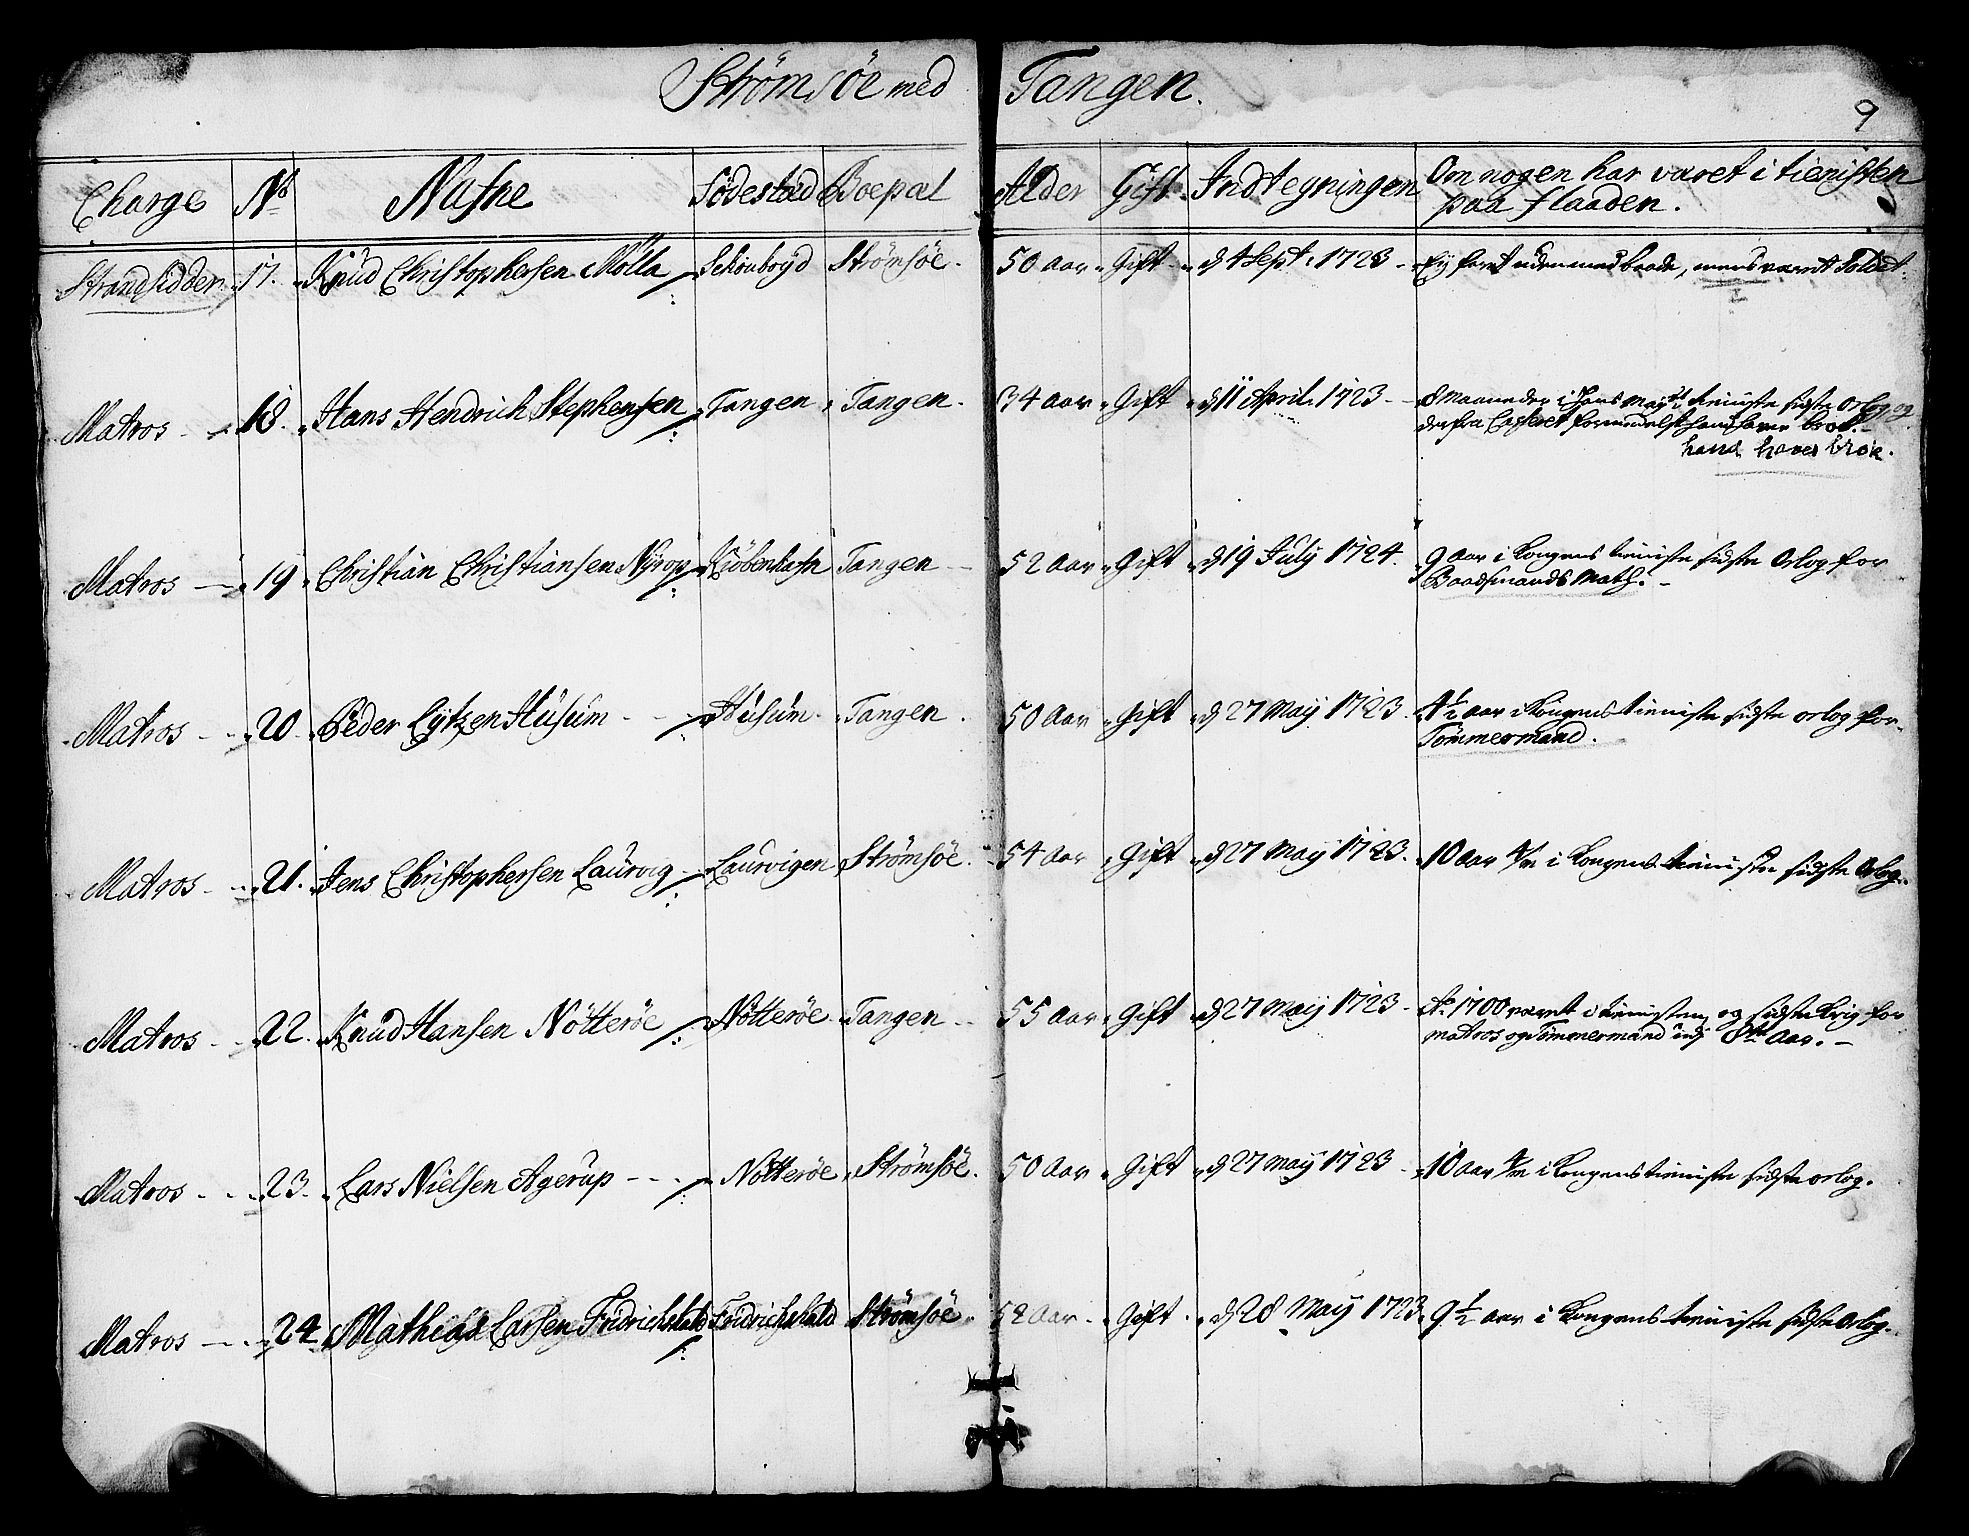 Strømsöe med Tangen.
9
Charge No Nafne Födestæd Boepæl Alder Gift Indtegningen Om nogen har været i tienisten
paa flaaden.
Strandsidder 17. Knud Christophersen Mølla Schoubøyd Strömsöe. 50 Aar Gift d 4 Sept. 1723 Ey faret uden med baade, mens været Soldat
Matros 18. Hans Hendrich Stephensen Tangen Tangen. 34 aar Gift d 11 April. 1723 8 Maaneder i Hans Mayts tieniste sidste Orlog, og
derfra Casseret formedelst hand haver brok.
hand haver brok.
Matros 19 Christian Christiansen Nyrop Kiöbenhafn Tangen 52 aar Gift d 19 July 1724. 9 aar i Kongens tieniste sidste Orlog for
Baadsmands Math.
Matros 20 Peder Lytzen Husum Husum. Tangen. 50 Aar Gift d 27 May 1723. 4½ aar i Kongens tieniste sidste orlog for
Tömmermand.
Matros 21. Jens Christophersen Laurvig Laurvigen Strömsöe. 54 aar Gift d 27 May 1723. 10 aar i Kongens tieniste sidste Orlog.
Matros 22. Knud Hansen Nötteröe Nötteröe Tangen 55 aar Gift d 27 May 1723 Ao 1700 været i tienisten og sidste Krig for
matros og Tömmermand udj 8te Aar.
Matros 23. Lars Nielsen Agerup Nötteröe Strömsöe. 50 Aar Gift d 27 may 1723 10 aar i Kongens tieniste sidste orlog.
Matros 24 Mathias Larsen Fridrichshald Fridrichshald Strömsöe 52 Aar. Gift. d 28 May 1723 9½ aar i Kongens tieniste sidste Orlog.